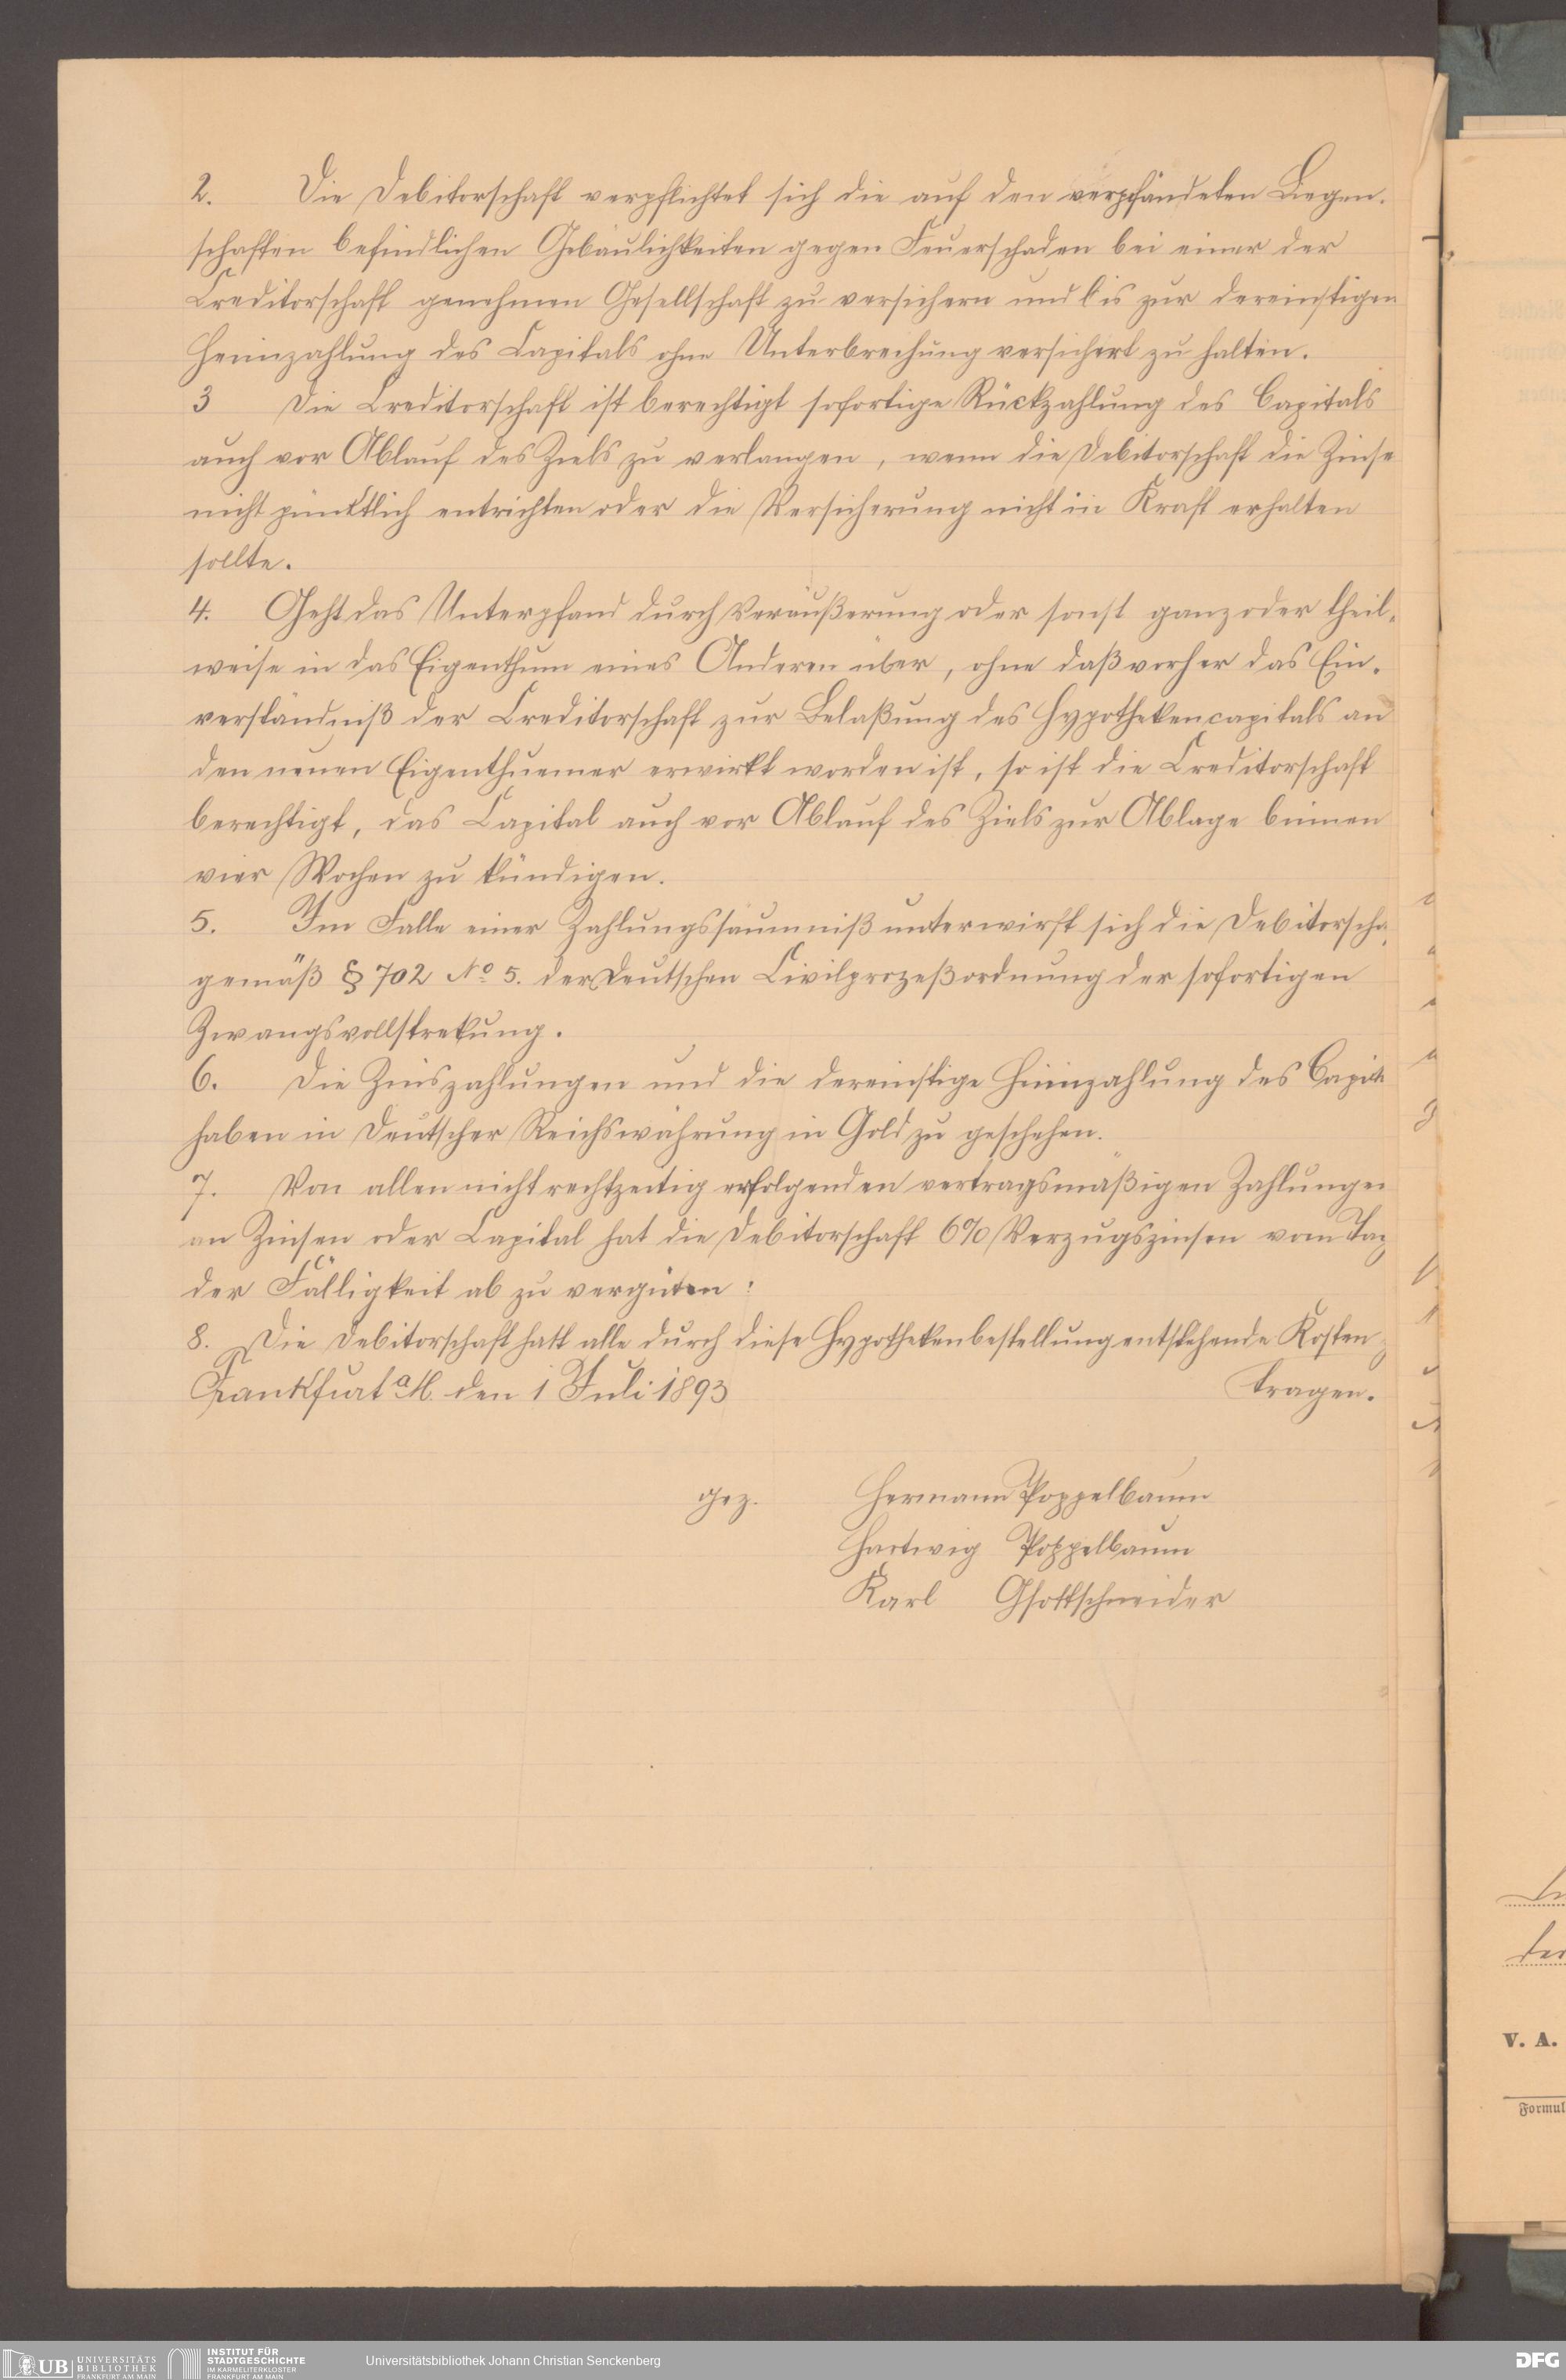 2. Die Debitorschaft verpflichtet sich die auf den verpfändeten Liegen-
schaften befindlichen Gebäulichkeiten gegen Feuerschaden bei einer der
Creditorschaft genehmen Gesellschaft zu versichern und bis zur dereinstigen
Heimzahlung des Capitals ohne Unterbrechung versichert zu halten.
3 Die Creditorschaft ist berechtigt sofortige Rückzahlung des Capitals
auch vor Ablauf des Ziels zu verlangen, wenn die Debitorschaft die Zinse
nicht pünktlich entrichten oder die Versicherung nicht in Kraft erhalten
sollte.
4. Geht das Unterpfand durch Veräußerung oder sonst ganz oder theil-
weise in das Eigenthum eines Anderen über, ohne daß vorher das Ein-
verständniß der Creditorschaft zur Belaßung des Hypothekencapitals an
den neuen Eigenthuemer erwirkt worden ist, so ist die Creditorschaft
berechtigt, das Capital auch vor Ablauf des Ziels zur Ablage binnen
vier Wochen zu kündigen.
5. Im Falle einer Zahlungssäumniß unterwirft sich die Debitorscha
gemäß § 702 No 5. der Deutschen Civilprozeßordnung der sofortigen
Zwangsvollstrekung.
6. Die Zinszahlungen und die dereinstige Heimzahlung des Capita
haben in Deutscher Reichswährung in Gold zu geschehen.
7. Von allen nicht rechtzeitig erfolgenden vertragsmäßigen Zahlungen
an Zinsen oder Capital hat die Debitorschaft 6% Verzugszinsen vom Tag
der Fälligkeit ab zu vergüten:
8. Die Debitorschaft hatt alle durch diese Hypothekenbestellung entstehende Kosten
Frankfurt a M. den 1 Juli 1893 tragen.
gez. Hermann Poppelbaum
Hartwig Poppelbaum
Karl Gsottschneider
V. A.
Formul
UB UNIVERSITÄTS
BIBLIOTHEK
FRANKFURT AM MAIN
INSTITUT FÜR
STADTGESCHICHTE
IM KARMELITERKLOSTER
FRANKFURT AM MAIN
Universitätsbibliothek Johann Christian Senckenberg
DFG